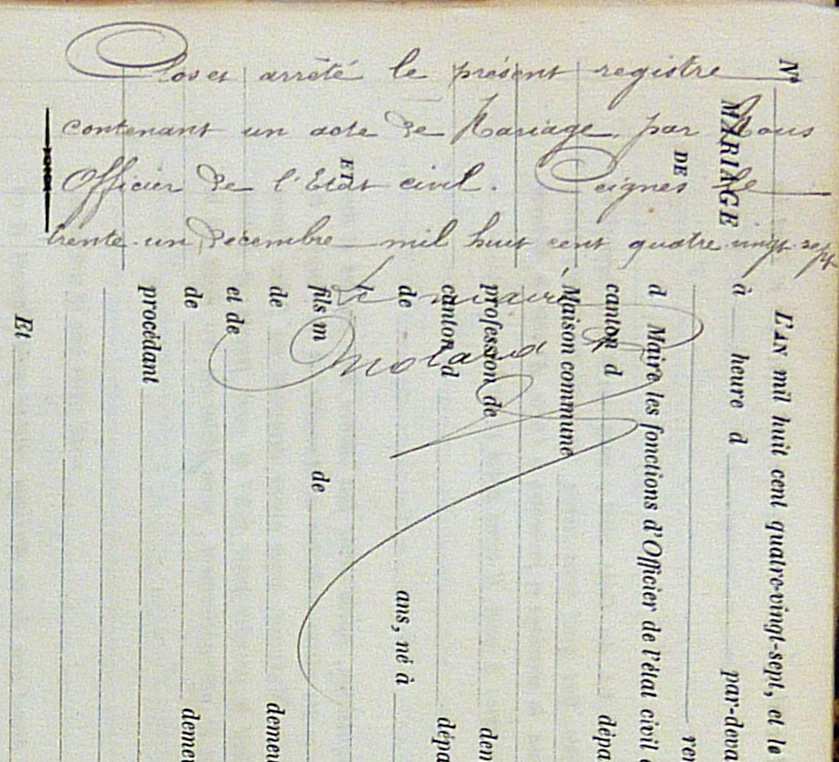 Clos et arrêté le présent registre
contenant un acte de Mariage, par Nous
Officier de l'Etat civil. Ceignes le
trente-un Décembre mil huit cent quatre vingt-sept
Le maire
Nº
MARIAGE
DE
ET
L'AN mil huit cent quatre-vingt-sept, et le
à heure d par-deva
ren
d Maire les fonctions d'Officier de l'état civil
canton d dépa
Maison commune
profession de dem
canton d dépa
de ans, né à
fils m de
de demeu
et de
de demeu
procédant
Et